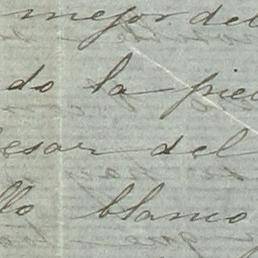 mejor del
do la pie
esar del
llo blanco